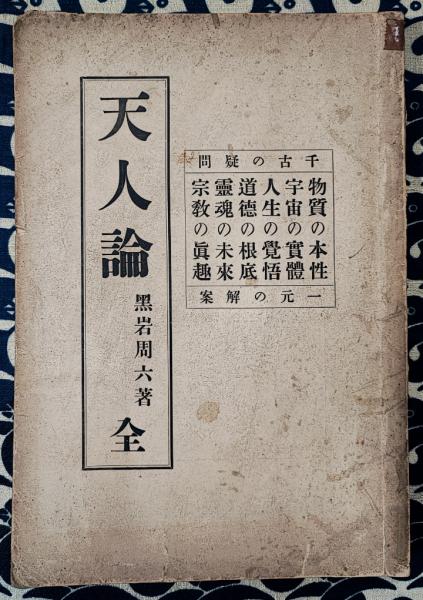 千古の疑問
物質の本性
宇宙の實體
人生の覺悟
道德の根底
靈魂の未來
宗敎の眞趣
一元の解案
天人論
黑岩周六著
全